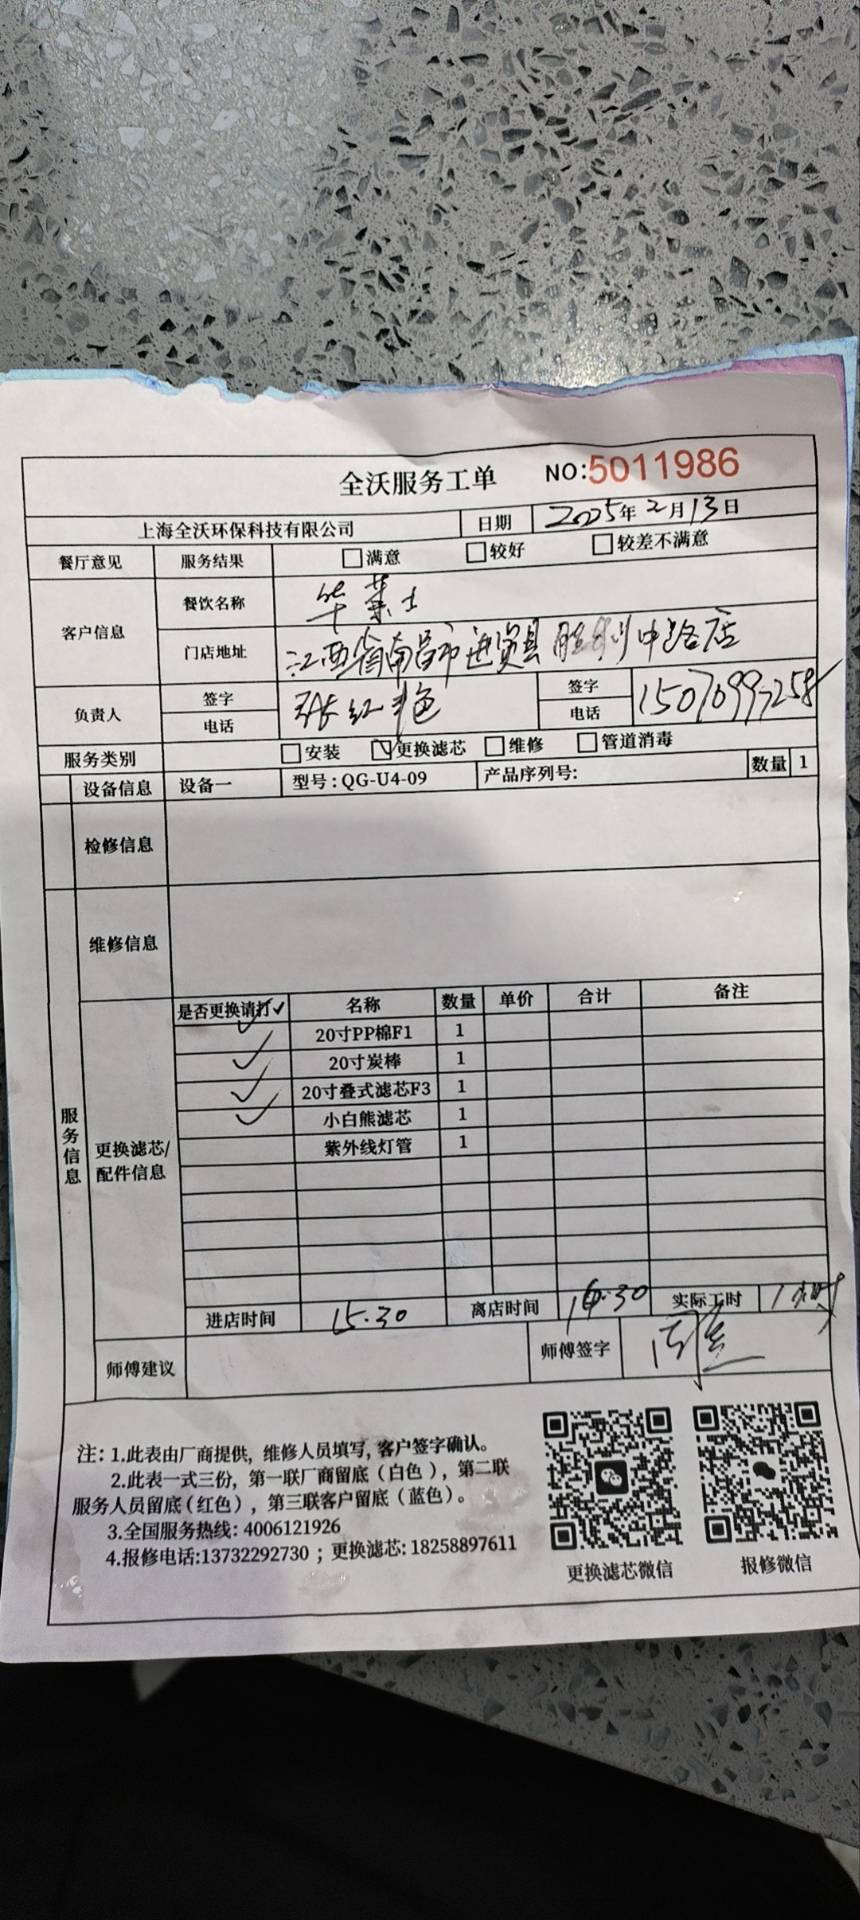 全沃服务工单 NO:5011986
上海全沃环保科技有限公司 日期 2025年2月13日
餐厅意见 服务结果 满意 较好 较差不满意
客户信息 餐饮名称 华莱士
门店地址 江西省南昌市进贤县胜利中路店
负责人 签字 电话 张红艳 签字 电话 15070997258
服务类别 安装 更换滤芯 维修 管道消毒
设备信息 设备一 型号:QG-U4-09 产品序列号: 数量 1
检修信息
维修信息
服务信息
更换滤芯/配件信息
是否更换请打✓ 名称 数量 单价 合计 备注
✓ 20寸PP棉F1 1
✓ 20寸炭棒 1
✓ 20寸叠式滤芯F3 1
✓ 小白熊滤芯 1
紫外线灯管 1
进店时间 15.30 离店时间 16.30 实际工时 1小时
师傅建议 师傅签字
注: 1.此表由厂商提供, 维修人员填写, 客户签字确认。
2.此表一式三份, 第一联厂商留底(白色), 第二联
服务人员留底(红色), 第三联客户留底(蓝色)。
3.全国服务热线: 4006121926
4.报修电话:13732292730 ; 更换滤芯: 18258897611
更换滤芯微信 报修微信